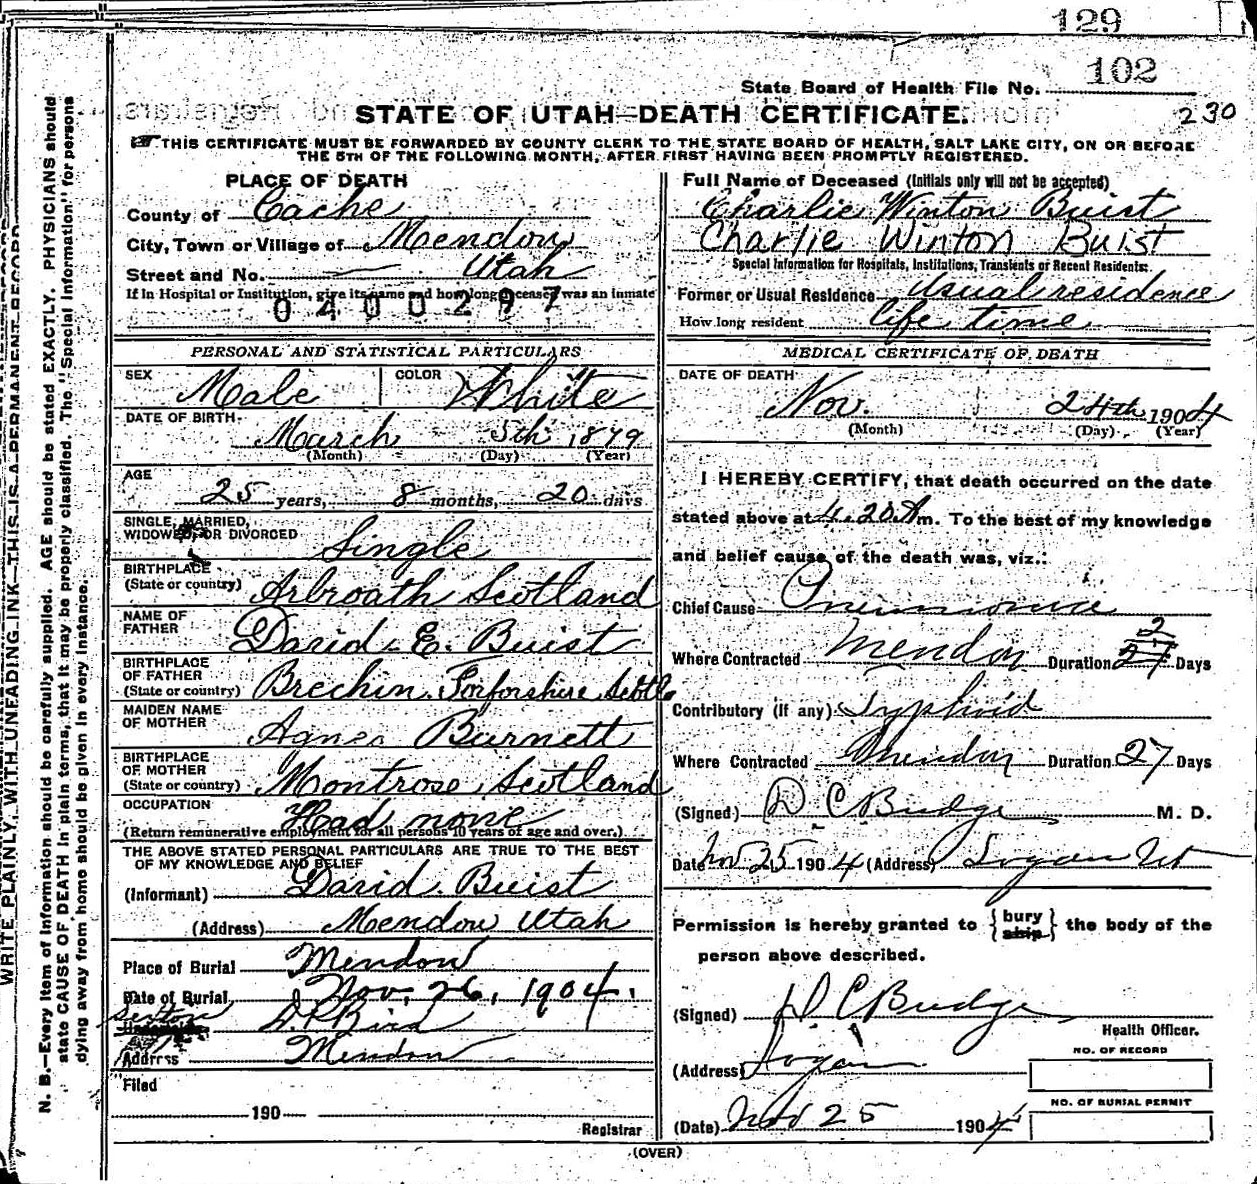 129
State Board of Health File No. 102
230
STATE OF UTAH—DEATH CERTIFICATE.
THIS CERTIFICATE MUST BE FORWARDED BY COUNTY CLERK TO THE STATE BOARD OF HEALTH, SALT LAKE CITY, ON OR BEFORE
THE 5TH OF THE FOLLOWING MONTH, AFTER FIRST HAVING BEEN PROMPTLY REGISTERED.
PLACE OF DEATH
County of Cache
City, Town or Village of Mendon
Street and No. — Utah
If in Hospital or Institution, give its name and how long deceased was an inmate
0400297
Full Name of Deceased (Initials only will not be accepted)
Charlie Winton Buist
Charlie Winton Buist
Special Information for Hospitals, Institutions, Transients or Recent Residents:
Former or Usual Residence Usual residence
How long resident life time
PERSONAL AND STATISTICAL PARTICULARS
SEX Male COLOR White
DATE OF BIRTH March 5th 1879
(Month) (Day) (Year)
AGE
25 years, 8 months, 20 days
SINGLE, MARRIED,
WIDOWED, OR DIVORCED Single
BIRTHPLACE
(State or country) Arbroath Scotland
NAME OF
FATHER David E. Buist
BIRTHPLACE
OF FATHER
(State or country) Brechin Forforshire Scotl
MAIDEN NAME
OF MOTHER Agnes Burnett
BIRTHPLACE
OF MOTHER
(State or country) Montrose, Scotland
OCCUPATION Had none
(Return remunerative employment for all persons 10 years of age and over.)
THE ABOVE STATED PERSONAL PARTICULARS ARE TRUE TO THE BEST
OF MY KNOWLEDGE AND BELIEF
(Informant) David Buist
(Address) Mendon Utah
Place of Burial Mendon
Date of Burial Nov. 26, 1904.
Sexton Bird
Address Mendon
Filed
190
Registrar
MEDICAL CERTIFICATE OF DEATH
DATE OF DEATH
Nov. 24th 1904
(Month) (Day) (Year)
I HEREBY CERTIFY, that death occurred on the date
stated above at 4.20 A m. To the best of my knowledge
and belief cause of the death was, viz.:
Chief Cause Pneumonia
Where Contracted Mendon Duration 2 Days
Contributory (if any) Typhoid
Where Contracted Mendon Duration 27 Days
(Signed) D C Budge M. D.
Date Nov 25 1904 (Address) Logan Ut
Permission is hereby granted to {bury ship} the body of the
person above described.
(Signed) D C Budge
Health Officer.
(Address) Logan
NO. OF RECORD
NO. OF BURIAL PERMIT
(Date) Nov 25 1904
(OVER)
WRITE PLAINLY, WITH UNFADING INK—THIS IS A PERMANENT RECORD
N. B.—Every item of information should be carefully supplied. AGE should be stated EXACTLY. PHYSICIANS should
state CAUSE OF DEATH in plain terms, that it may be properly classified. The "Special Information" for persons
dying away from home should be given in every instance.